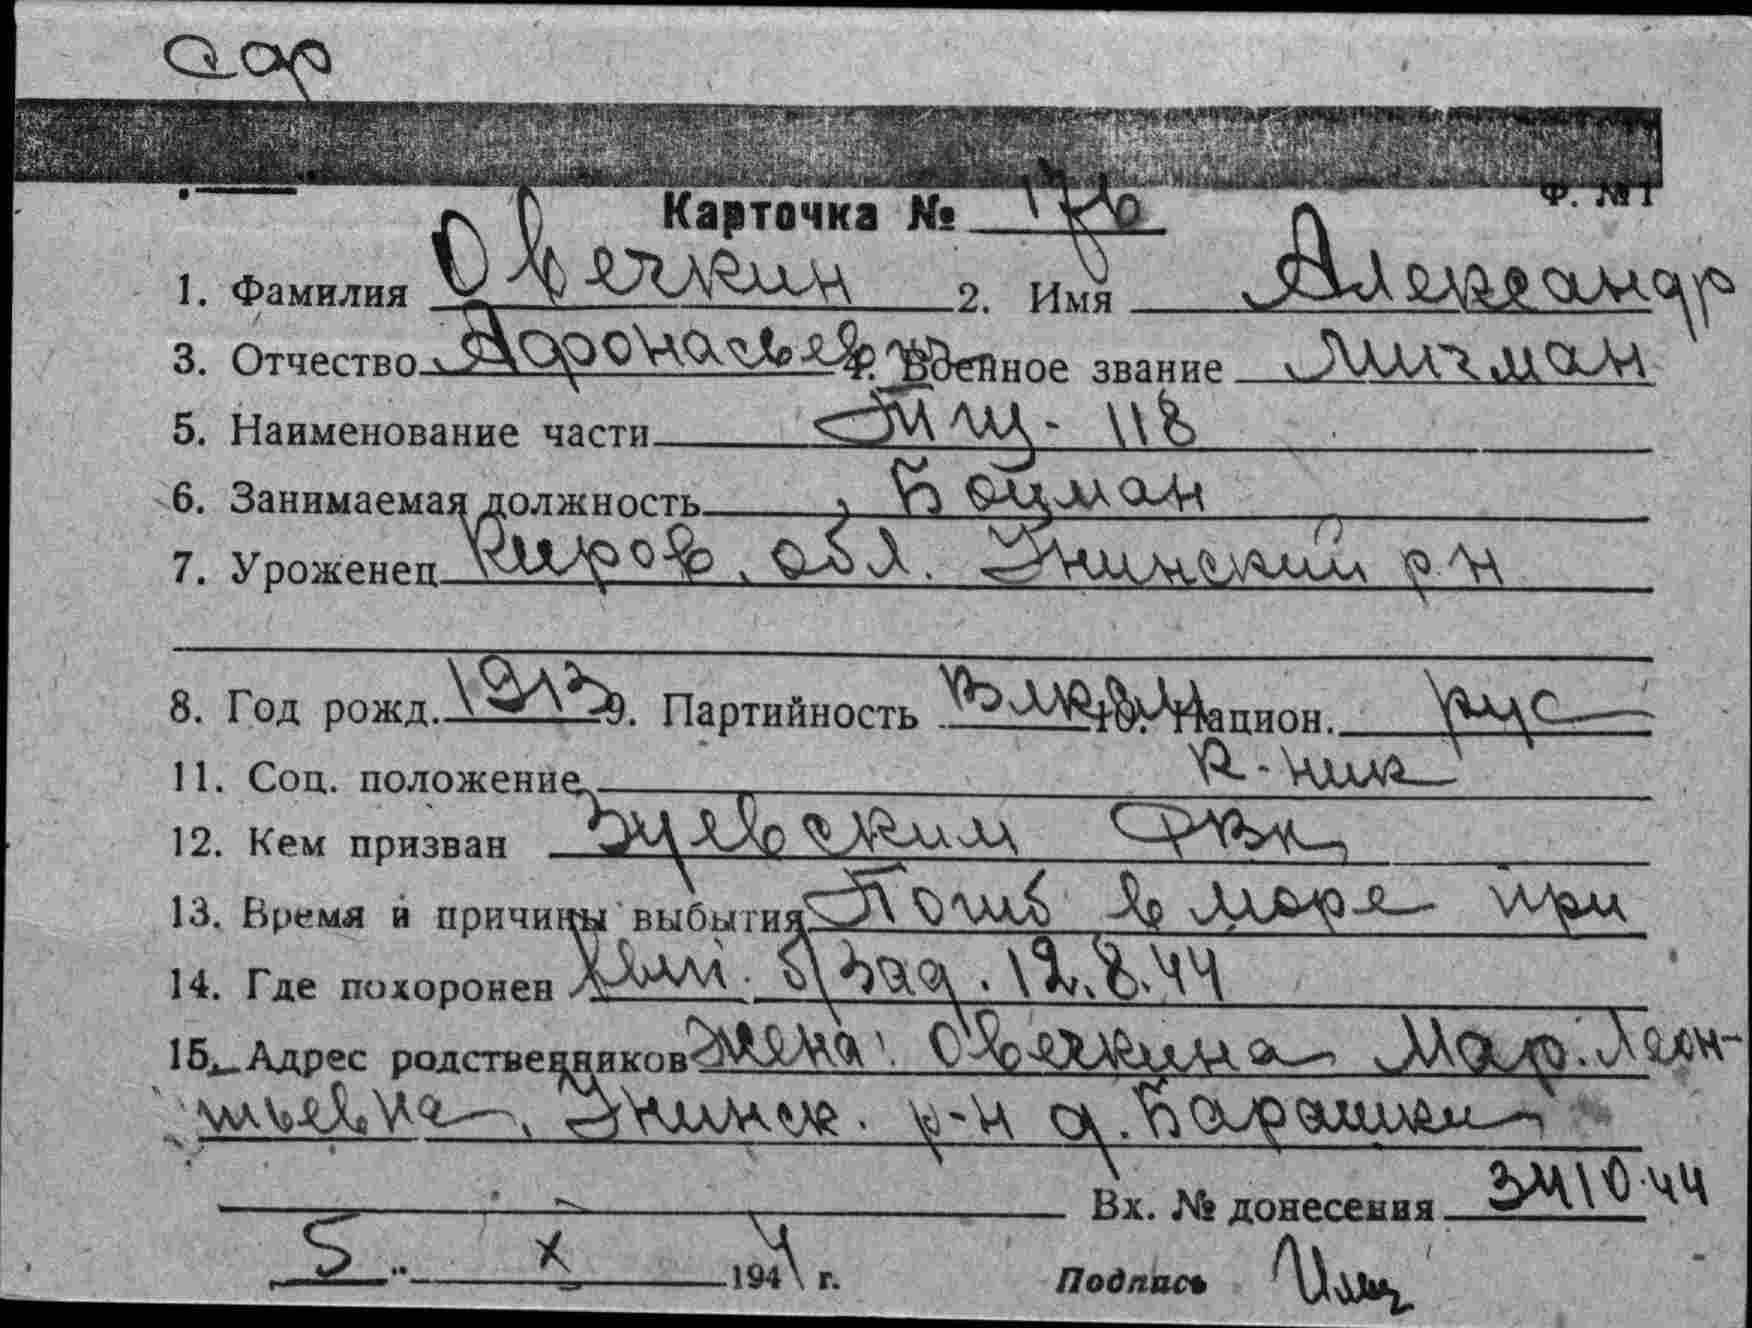 Ф. №1
Карточка №
1. Фамилия Овечкин 2. Имя Александр
3. Отчество Афонасьев. 4. Военное звание Мичман
5. Наименование части ТЩ-118
6. Занимаемая должность Боцман
7. Уроженец Киров. обл. Унинский р-н
8. Год рожд. 1913 9. Партийность 10. Национ. рус
11. Соц. положение К-ник
12. Кем призван Зуевским РВК
13. Время и причины выбытия Погиб в море при
14. Где похоронен вып. б/зад. 12.8.44
15. Адрес родственников Жена: Овечкина Мар. Леон-
тьевна, Унинск. р-н д. Барашки
Вх. № донесения 44
5 X 1944 г. Подпись